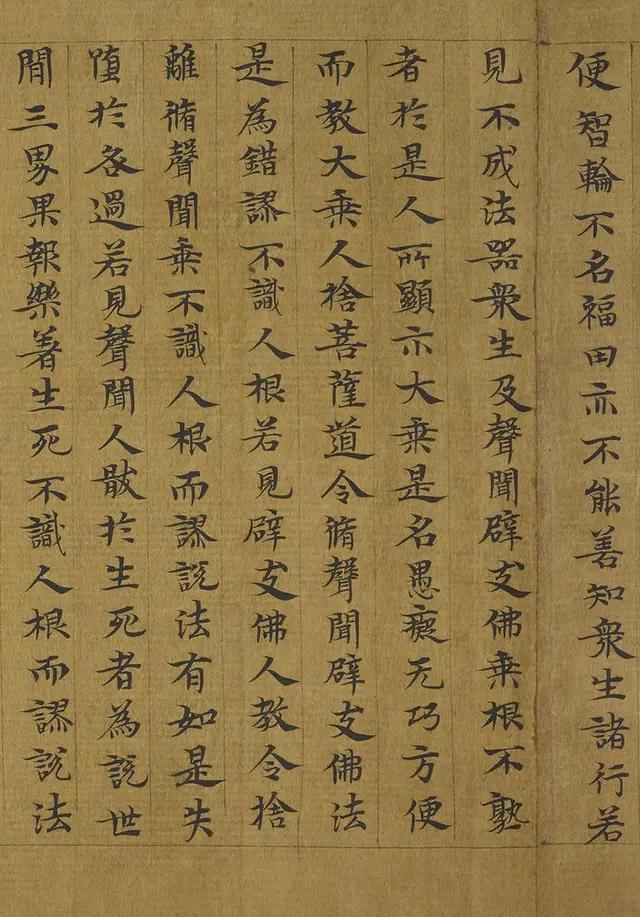 便智輪不名福田亦不能善知衆生諸行若
見不成法器衆生及聲聞辟支佛乗根不熟
者於是人所顯示大乗是名愚癡无巧方便
而教大乗人捨菩薩道令脩聲聞辟支佛法
是為錯謬不識人根若見辟支佛人教令捨
離脩聲聞乗不識人根而謬說法有如是失
墮於各過若見聲聞人猒於生死者為說世
間三界果報樂著生死不識人根而謬說法